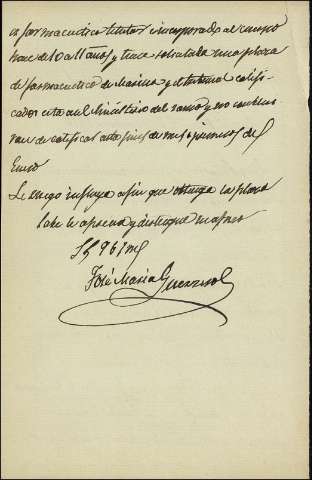 es farmaceutico titular incorporado al cuerpo
hace de 10 a 11 años, y tiene solicitada una plaza
de farmaceutico de Marina y el tribunal califi-
cador esta en el Ministerio del ramo y no
de calificar asta fines de mes o primeros de
Enero
Le ruego influya a fin que obtenga la plaza
Sabe le aprecia y distingue su afmo
José Maria